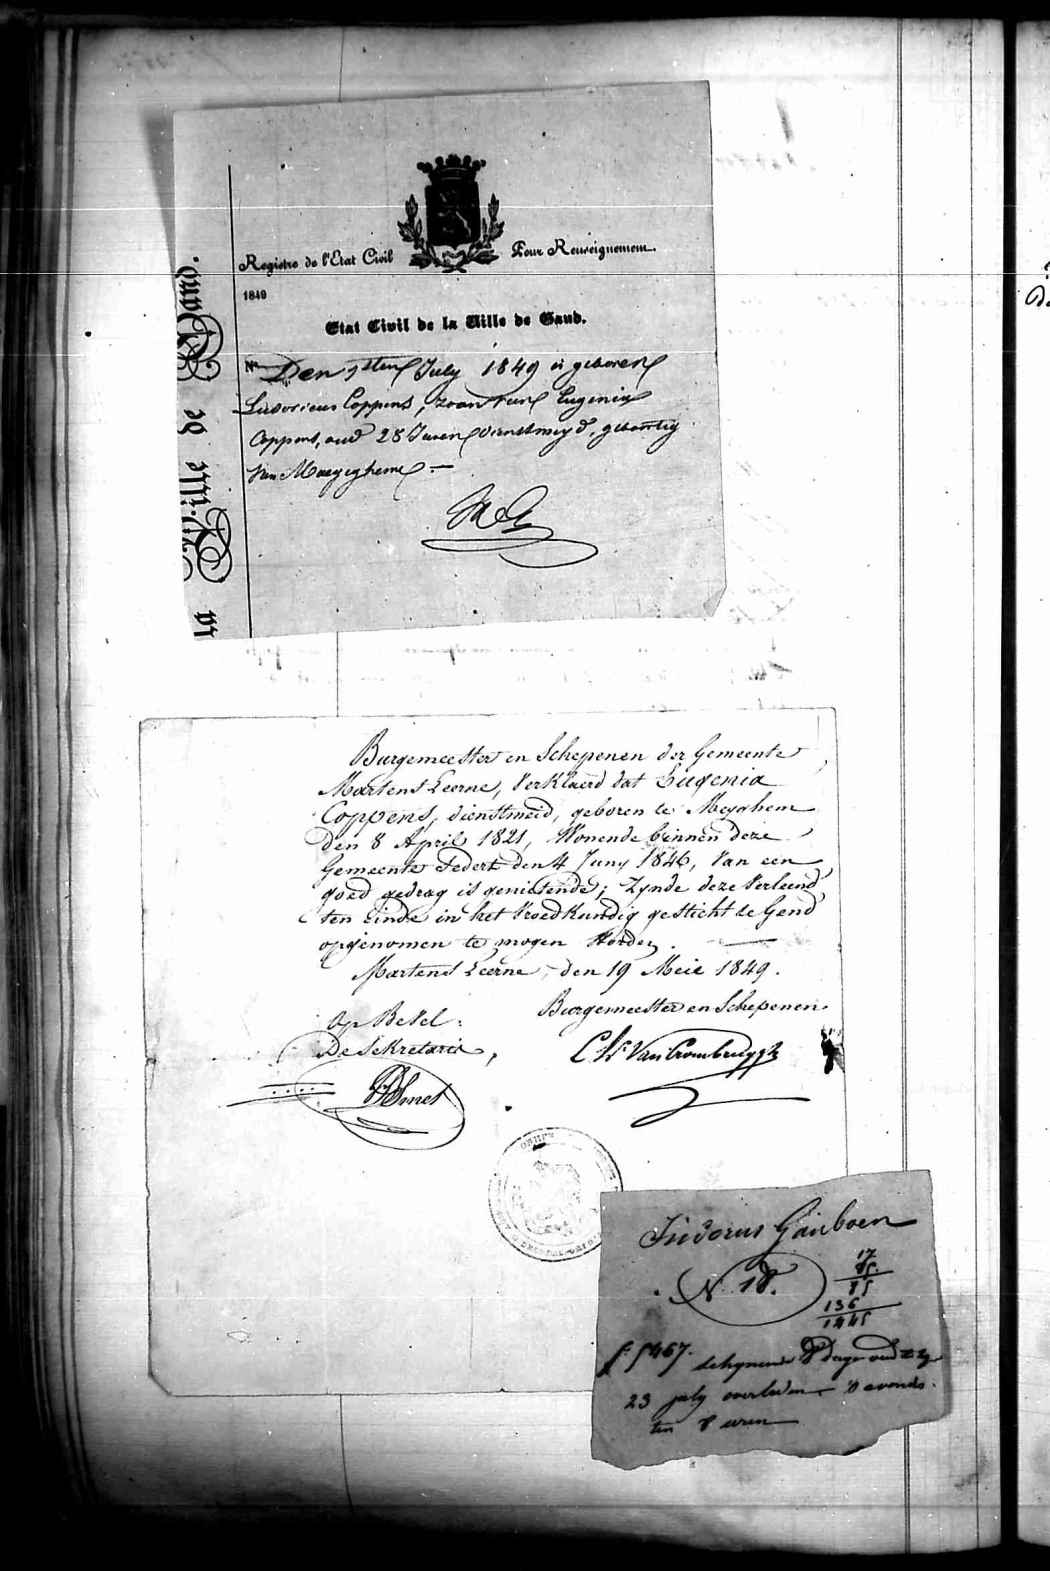 Registre de l'Etat Civil Pour Renseignement.
1840
Etat Civil de la Ville de Gand.
Ville de Gand.
No Den 1sten July 1849 is geboren
Coppens, zoon van Eugenia
Coppens, oud 28 Jaren dienstmeyd, geboortig
van Maeygheme.—
Burgemeester en Schepenen der Gemeente
Martens Leerne, Verklaerd dat Eugenia
Coppens, dienstmeid, geboren te Meyghem
den 8 April 1821, Wonende binnen deze
Gemeente Sedert den 4 Juny 1846, Van een
goed gedrag is genietende; Zynde deze Verleend
ten Einde in het Vroedkundig gesticht te Gend
opgenomen te mogen Worden.
Martens Leerne, den 19 Meie 1849.
Op Bevel: Burgemeester en Schepenen
De Sekretaris,
DSmet
Van Crombrugghe
Isidorus
N 18.
17
85.
85
136
1445
f. 5467. schynende 8 dagen oud zy
23 july overleden s avonds
ten 8 uren